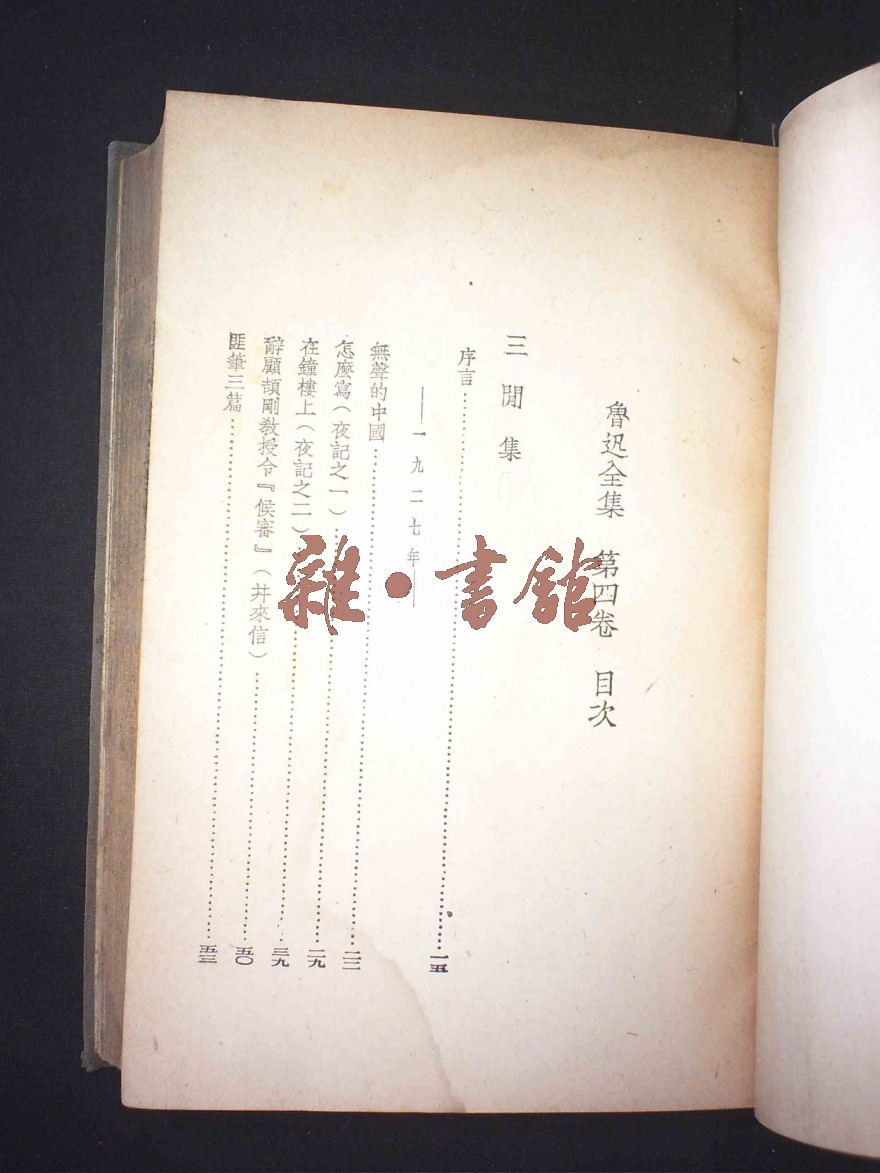 魯迅全集 第四卷 目次
三閒集
序言……一五
——一九二七年——
無聲的中國……二二
怎麼寫（夜記之一）……二九
在鐘樓上（夜記之二）……三九
辭顧頡剛教授令『候審』（幷來信）……五〇
匪筆三篇……五三
雜·書館